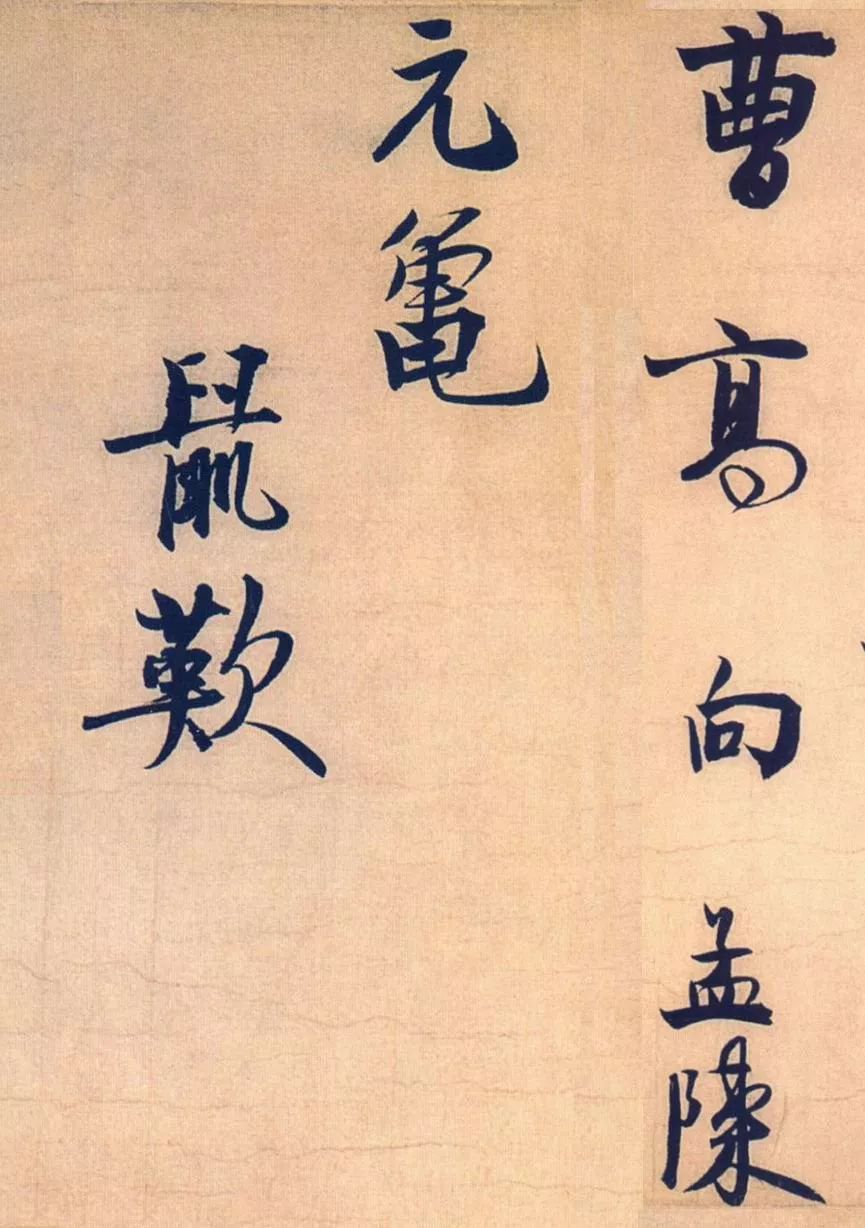 曹高向孟
元龜
鼠歎